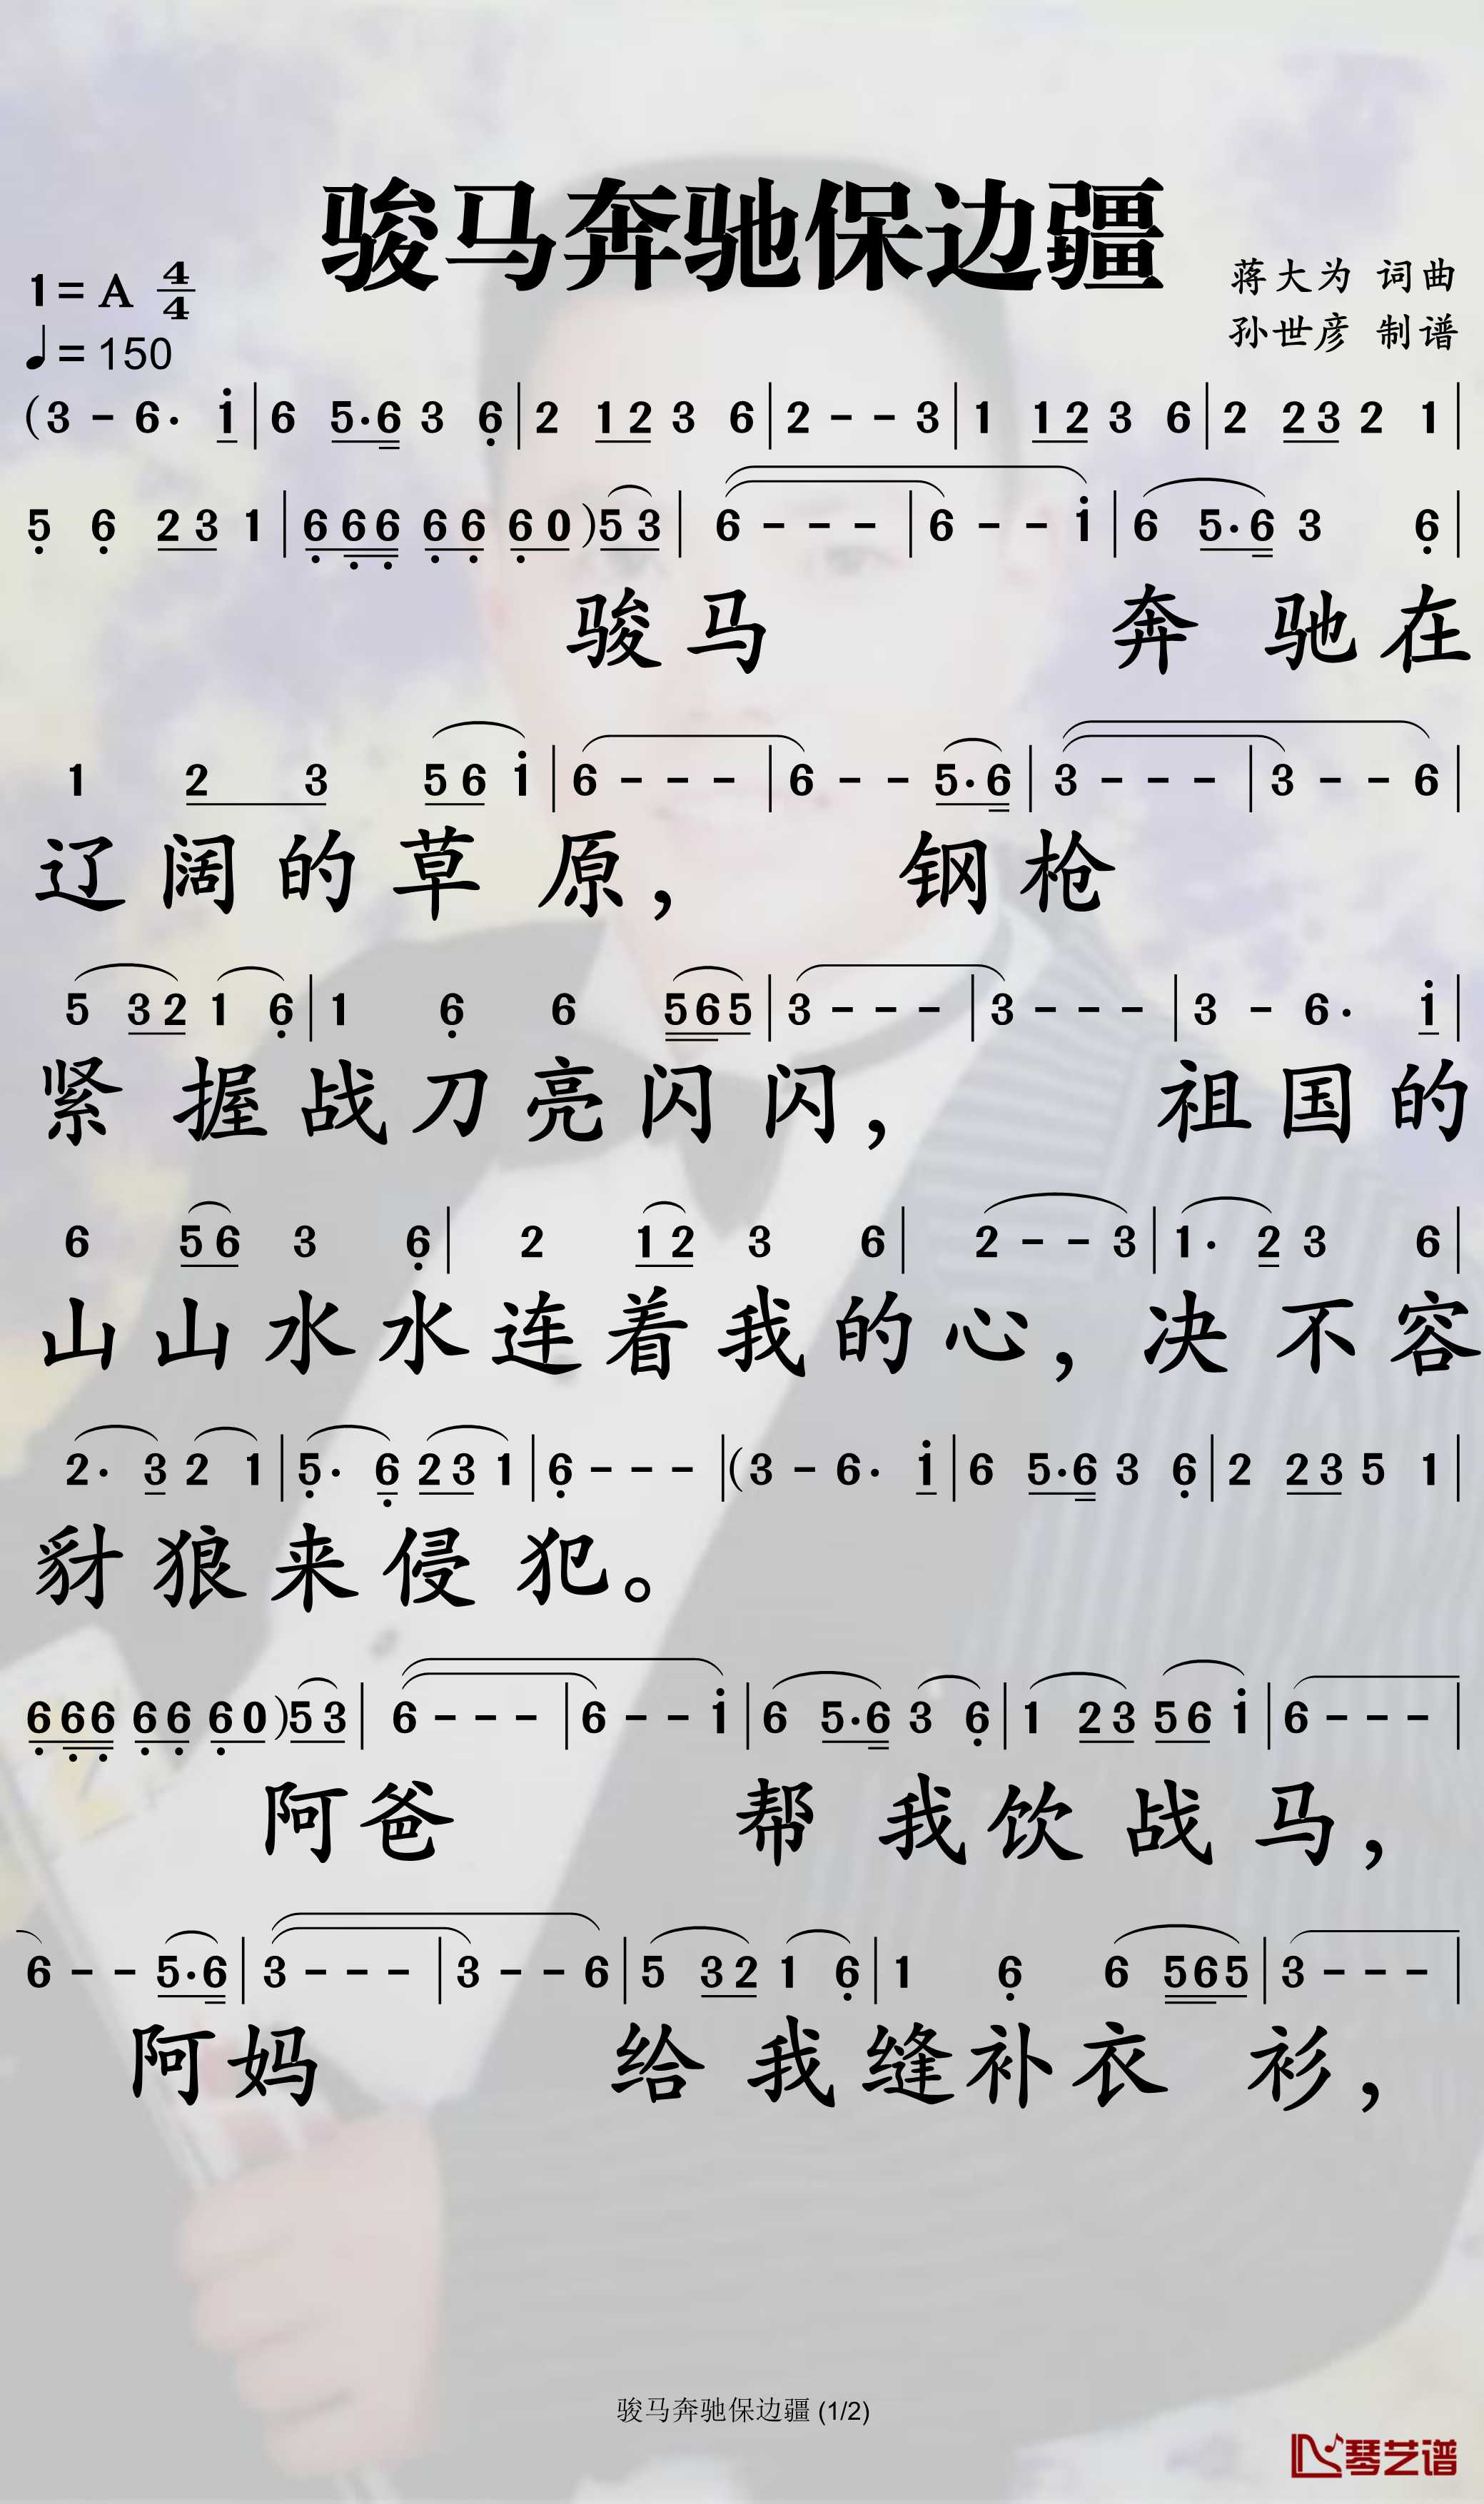 骏马奔驰保边疆
1=A 4/4
蒋大为 词曲
♩=150
孙世彦 制谱
(3 - 6· i̲ | 6 5·6 3 6̣ | 2 1 2 3 6 | 2 - - 3 | 1 1 2 3 6 | 2 2 3 2 1 |
5̣ 6̣ 2 3 1 | 6̣ 6̣ 6̣ 6̣ 6̣ 6̣ 0) 5 3 | 6 - - - | 6 - - i | 6 5·6 3 6̣ |
骏 马 奔 驰 在
1 2 3 5 6 i | 6 - - - | 6 - - 5·6 | 3 - - - | 3 - - 6 |
辽 阔 的 草 原, 钢 枪
5 3 2 1 6̣ | 1 6̣ 6 5 6 5 | 3 - - - | 3 - - - | 3 - 6· i |
紧 握 战 刀 亮 闪 闪, 祖 国 的
6 5 6 3 6̣ | 2 1 2 3 6 | 2 - - 3 | 1· 2 3 6 |
山 山 水 水 连 着 我 的 心, 决 不 容
2· 3 2 1 | 5̣· 6̣ 2 3 1 | 6̣ - - - | (3 - 6· i | 6 5·6 3 6̣ | 2 2 3 5 1 |
豺 狼 来 侵 犯。
6̣ 6̣ 6̣ 6̣ 6̣ 6̣ 0) 5 3 | 6 - - - | 6 - - i | 6 5·6 3 6̣ | 1 2 3 5 6 i | 6 - - - |
阿 爸 帮 我 饮 战 马,
6 - - 5·6 | 3 - - - | 3 - - 6 | 5 3 2 1 6̣ | 1 6̣ 6 5 6 5 | 3 - - - |
阿 妈 给 我 缝 补 衣 衫,
骏马奔驰保边疆 (1/2)
琴艺谱